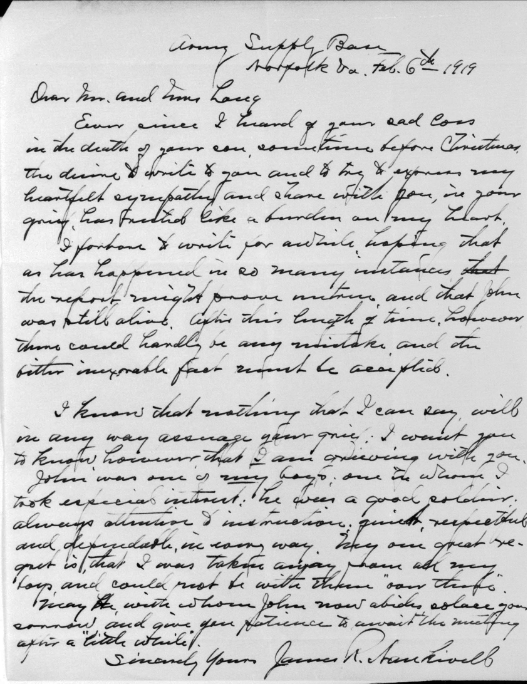 Army Supply Base
Norfolk Va. Feb. 6th 1919
Dear Mr. and Mrs Long
Ever since I heard of your sad loss
in the death of your son, sometime before Christmas,
the desire to write to you and to try to express my
heartfelt sympathy and share with you, in your
grief, has rested like a burden on my heart.
I forbore to write for awhile hoping that
as has happened in so many instances that
the report might prove untrue and that John
was still alive. After this length of time, however
there could hardly be any mistake and the
bitter inexorable fact must be accepted.
I know that nothing that I can say, will
in any way assuage your grief. I want you
to know however that I am grieving with you.
John was one of my boys, one in whom I
took especial interest. he was a good soldier.
always attentive to instruction, quiet, respectful
and dependable, in every way. My one great re-
gret is, that I was taken away from all my
boys and could not be with them "over there".
May He, with whom John now abides solace your
sorrow, and give you patience to await the meeting
after a "little while".
Sincerely Yours James R. Hankwell